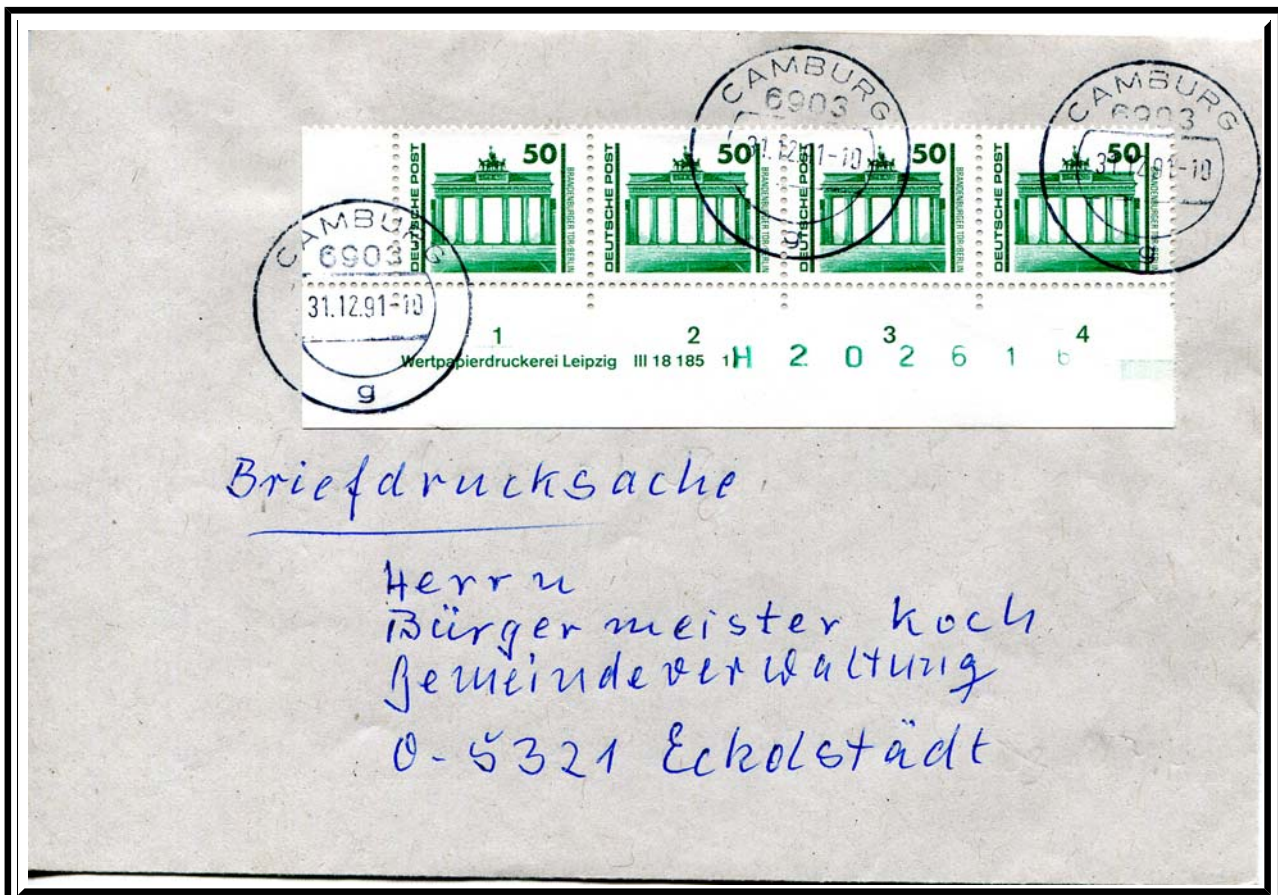 CAMBURG
6903
31.12.91-10
g
CAMBURG
6903
31.12.91-10
g
CAMBURG
6903
31.12.91-10
g
DEUTSCHE POST
50
BRANDENBURGER TOR/BERLIN
DEUTSCHE POST
50
BRANDENBURGER TOR/BERLIN
DEUTSCHE POST
50
BRANDENBURGER TOR/BERLIN
DEUTSCHE POST
50
BRANDENBURGER TOR/BERLIN
1 2 3 4
Wertpapierdruckerei Leipzig III 18 185 1 H 2 0 2 6 1 6
Briefdrucksache
Herrn
Bürgermeister Koch
Gemeindeverwaltung
O-5321 Eckolstädt